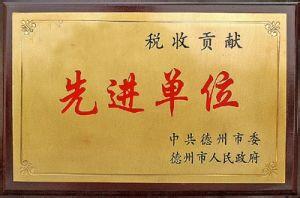 税收贡献
先进单位
中共德州市委
德州市人民政府